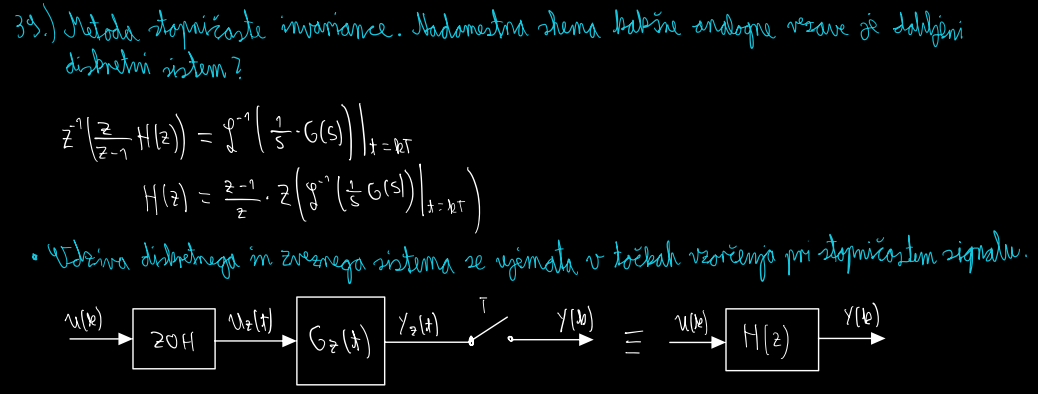 39.) Metoda stopničaste invariance. Nadomestna shema kakšne analogne vezave je dobljeni
diskretni sistem?
Z⁻¹(z/(z-1) H(z)) = ℒ⁻¹(1/s · G(s))|t=kT
H(z) = (z-1)/z · Z(ℒ⁻¹(1/s G(s))|t=kT)
• Odziva diskretnega in zveznega sistema se ujemata v točkah vzorčenja pri stopničastem signalu.
u(k) ZOH Uz(t) Gz(t) Yz(t) T Y(k) ≡ u(k) H(z) Y(k)